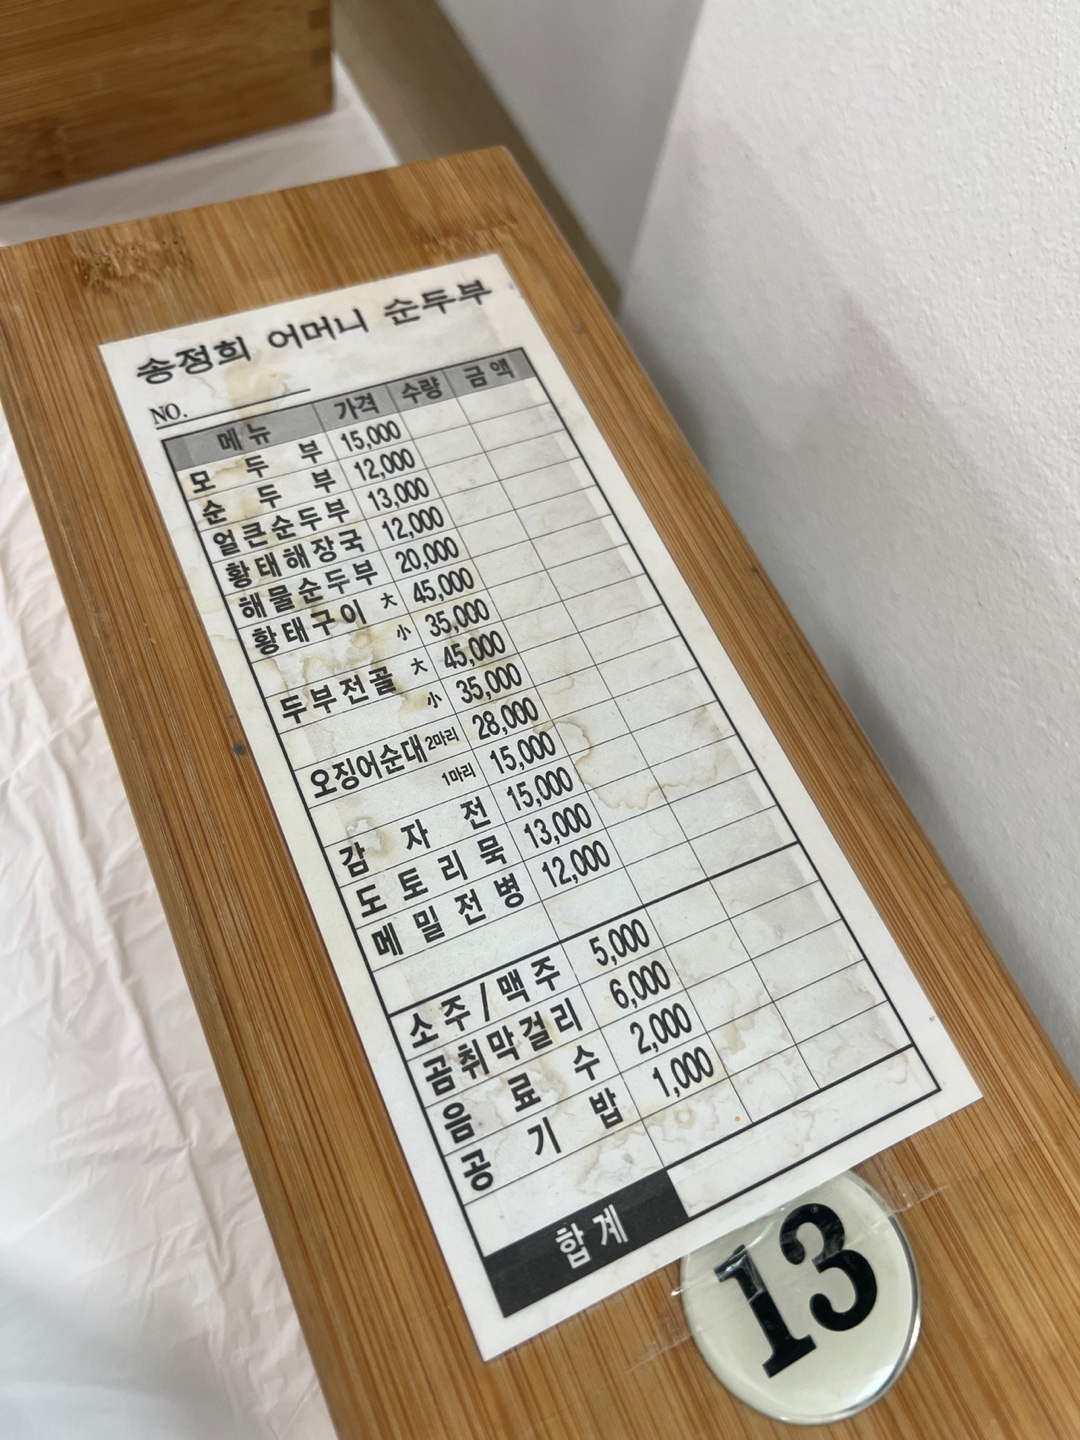 송정희 어머니 순두부
NO.
메뉴 가격 수량 금액
모두부 15,000
순두부 12,000
얼큰순두부 13,000
황태해장국 12,000
해물순두부 20,000
황태구이 大 45,000
小 35,000
두부전골 大 45,000
小 35,000
오징어순대 2마리 28,000
1마리 15,000
감자전 15,000
도토리묵 13,000
메밀전병 12,000
소주/맥주 5,000
곰취막걸리 6,000
음료수 2,000
공기밥 1,000
합계
13